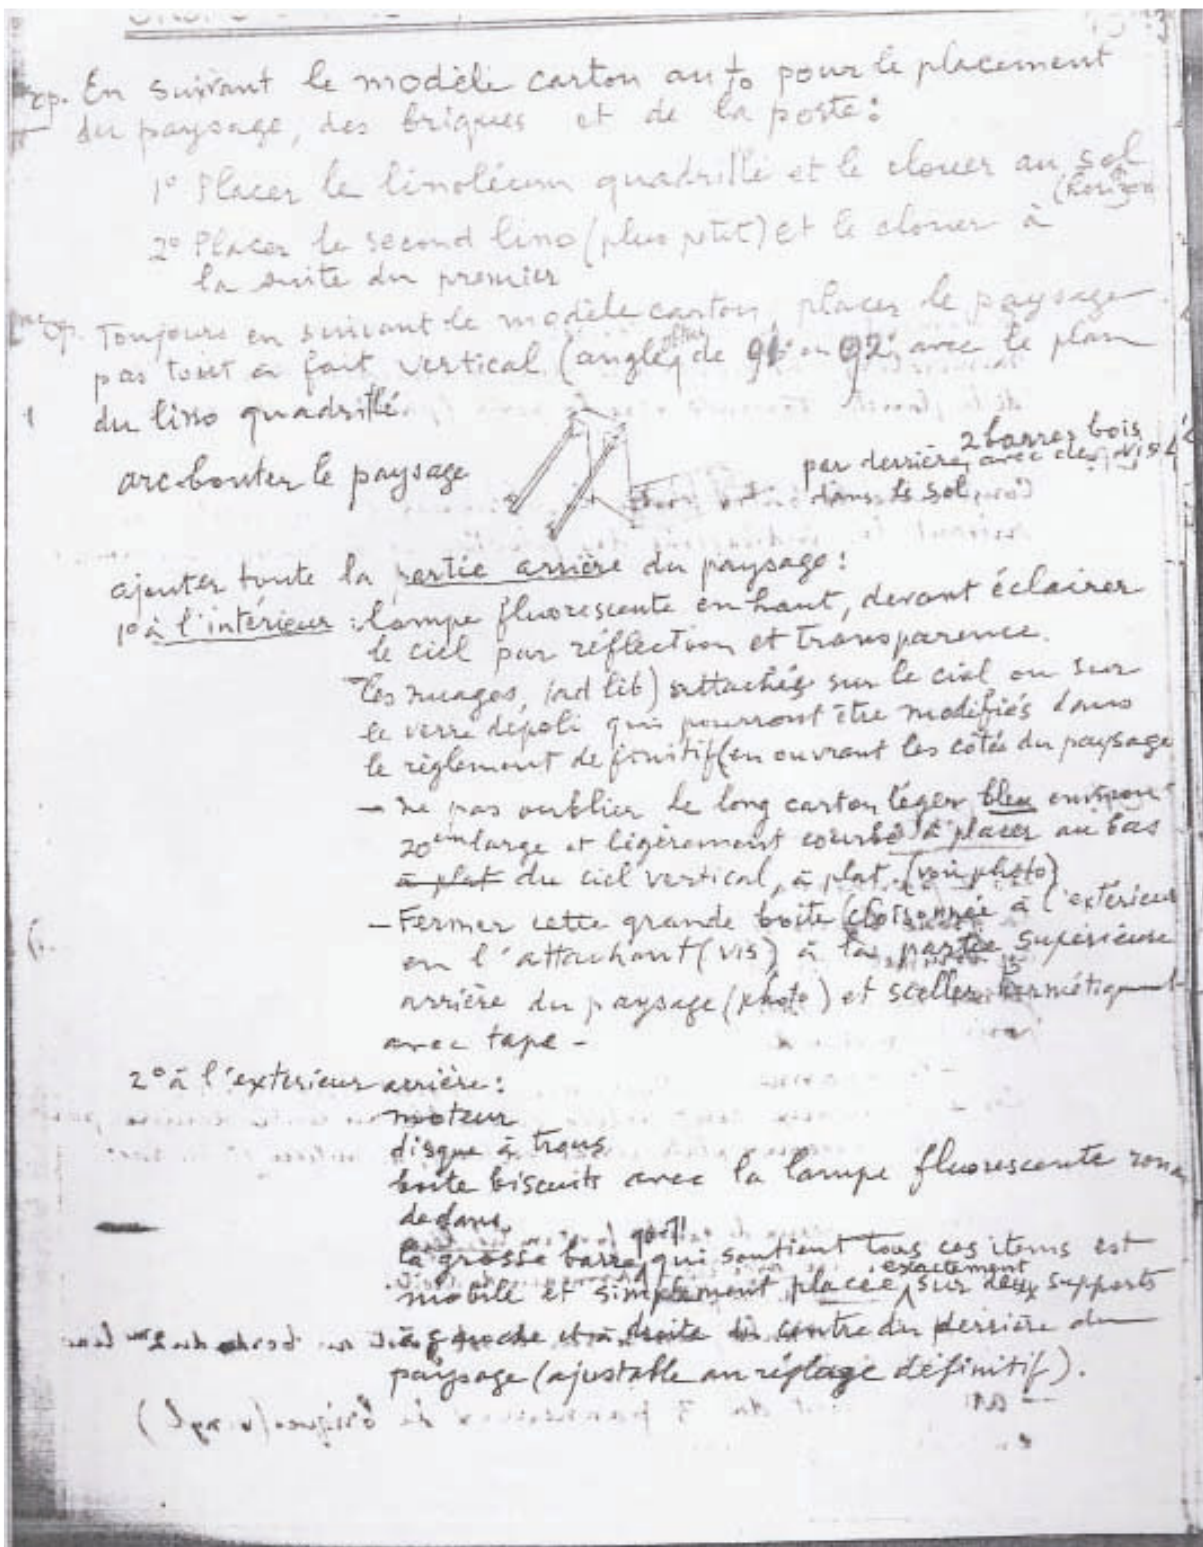 En suivant le modèle carton pour le placement
du paysage, des briques et de la porte:
1° Placer le linoléum quadrillé et le clouer au sol
(horizon
2° Placer le second lino (plus petit) et le clouer à
la suite du premier
op. Toujours en suivant le modèle carton, placer le paysage
pas tout a fait vertical (angle de 91° ou 92° avec le plan
du lino quadrillé.
arc-bouter le paysage
par derrière, avec des vis
2 barres bois
dans le sol
ajouter toute la partie arrière du paysage:
1° à l'intérieur : lampe fluorescente en haut, devant éclairer
le ciel par réflection et transparence.
- les nuages, (ad lib) attachés sur le ciel ou sur
le verre dépoli qui pourront être modifiés dans
le règlement definitif (en ouvrant les côtés du paysage
- ne pas oublier le long carton léger bleu
20cm large et légèrement courbé à placer au bas
à plat du ciel vertical, à plat. (voir photo)
- Fermer cette grande boite cloisonnée à l'extérieur
en l'attachant (vis) à la partie supérieure
arrière du paysage (photo) et sceller hermétiquement
avec tape -
2° à l'exterieur arrière:
moteur
disque à trous
boite biscuits avec la lampe fluorescente
dedans.
la grosse barre qui soutient tous ces items est
mobile et simplement placée exactement sur deux supports
à gauche et à droite du centre du derrière du
paysage (ajustable au réglage définitif).